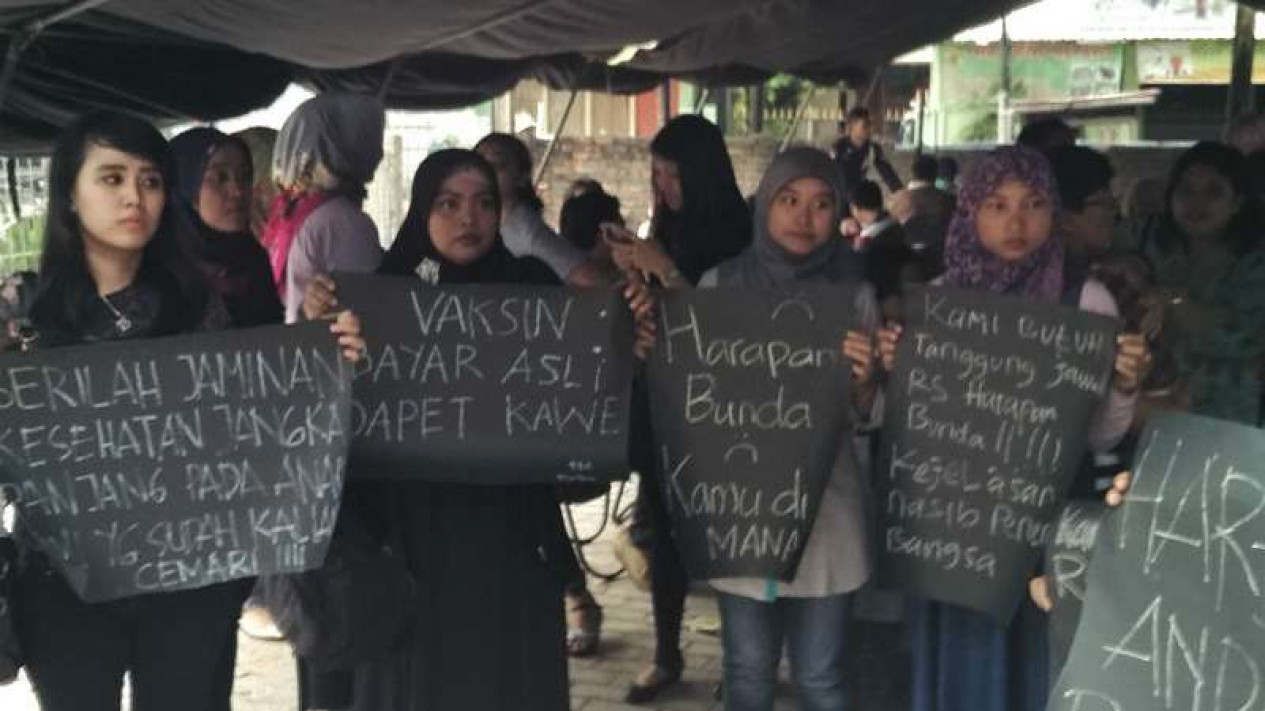 BERILAH JAMINAN
KESEHATAN JANGKA
PANJANG PADA ANAK
YG SUDAH KALIAN
CEMARI !!!!
VAKSIN :
BAYAR ASLI ;
DAPET KAWE
Harapan
Bunda
Kamu di
MANA
Kami BUTUH
Tanggung Jawab
RS Harapan
Bunda !!!!!
KeJeLasan
nasib Penerus
Bangsa
HAR
AND